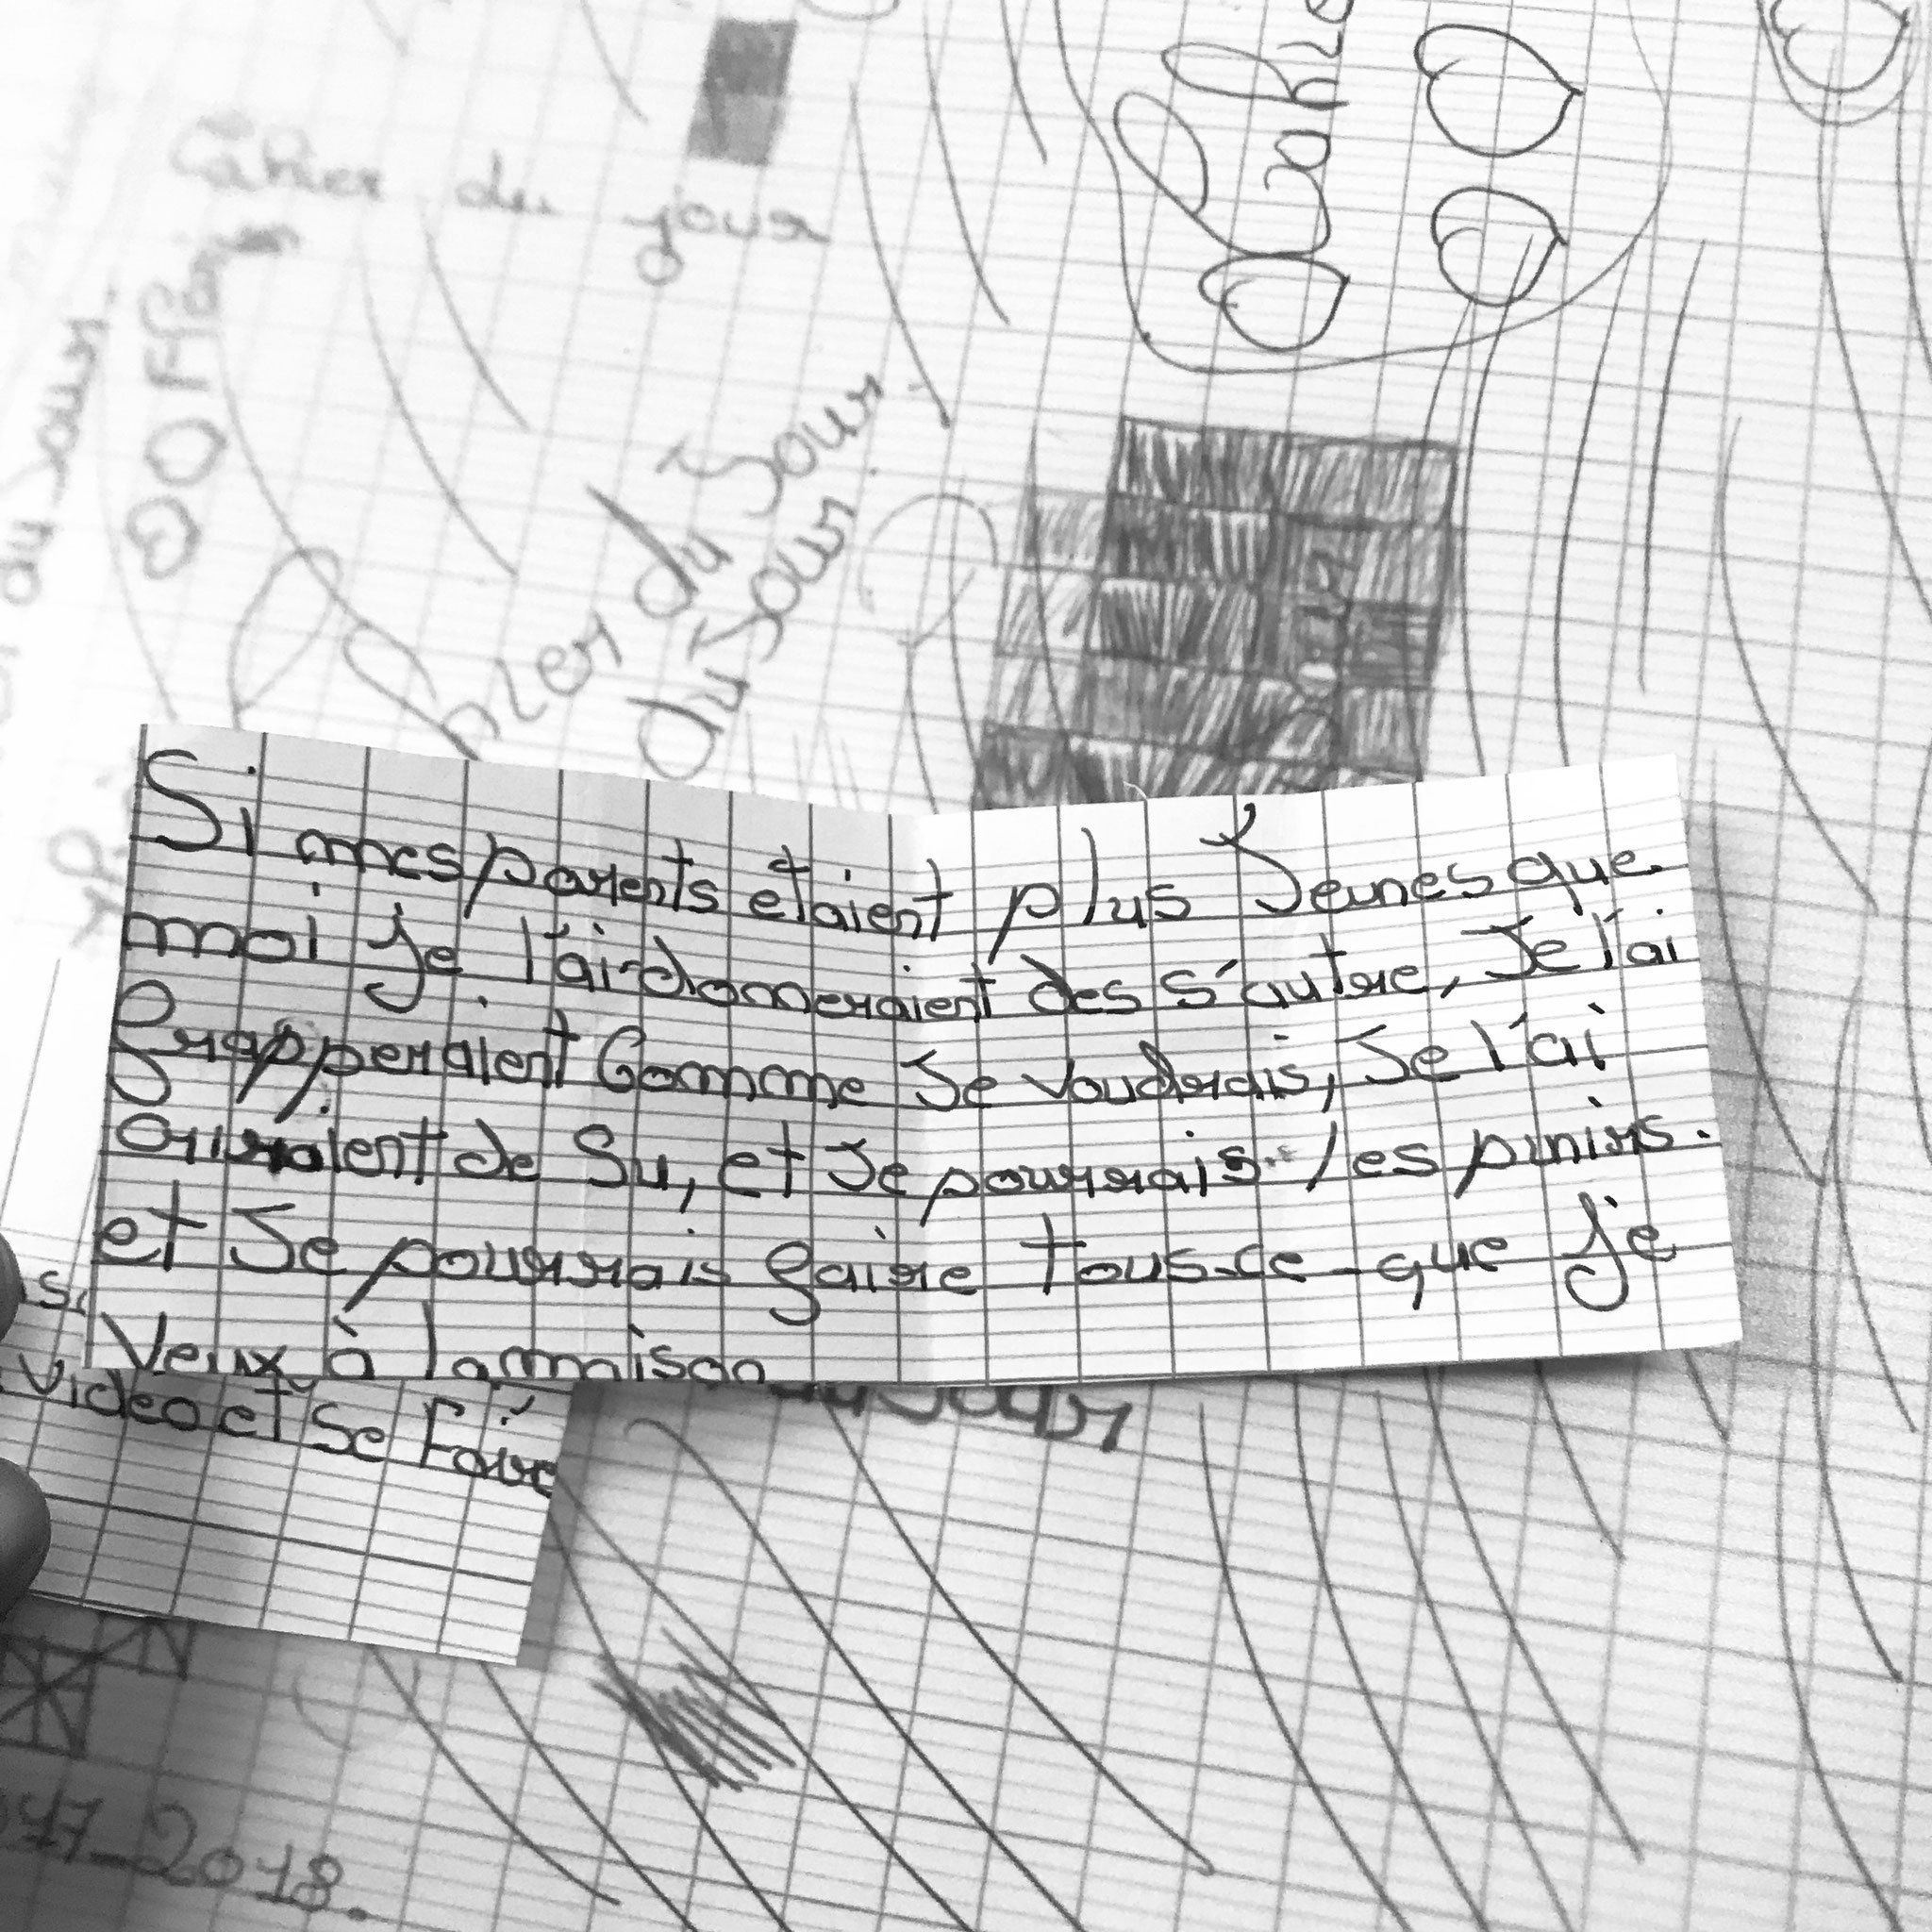 Cahier du jour
du Jour
hier du Jour
du Jour.
Si mes parents étaient plus Jeunes que
moi je l'ai domeraient des s'autre, Je l'ai
frapperaient Comme Je voudrais, Je l'ai
criraient de Su, et Je pourrais les punirs.
et Je pourrais faire tous-ce-que je
Veux à la maison
video et se Faire
17-2018.